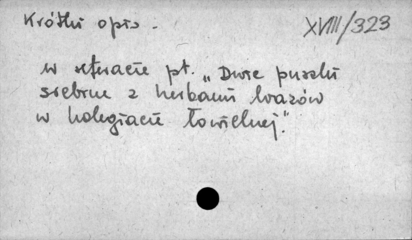 Krótki opis. XVIII/323
w pt. „Dwie puszki
srebrne z herbami Wazów
w kolegiacie Łowickiej."